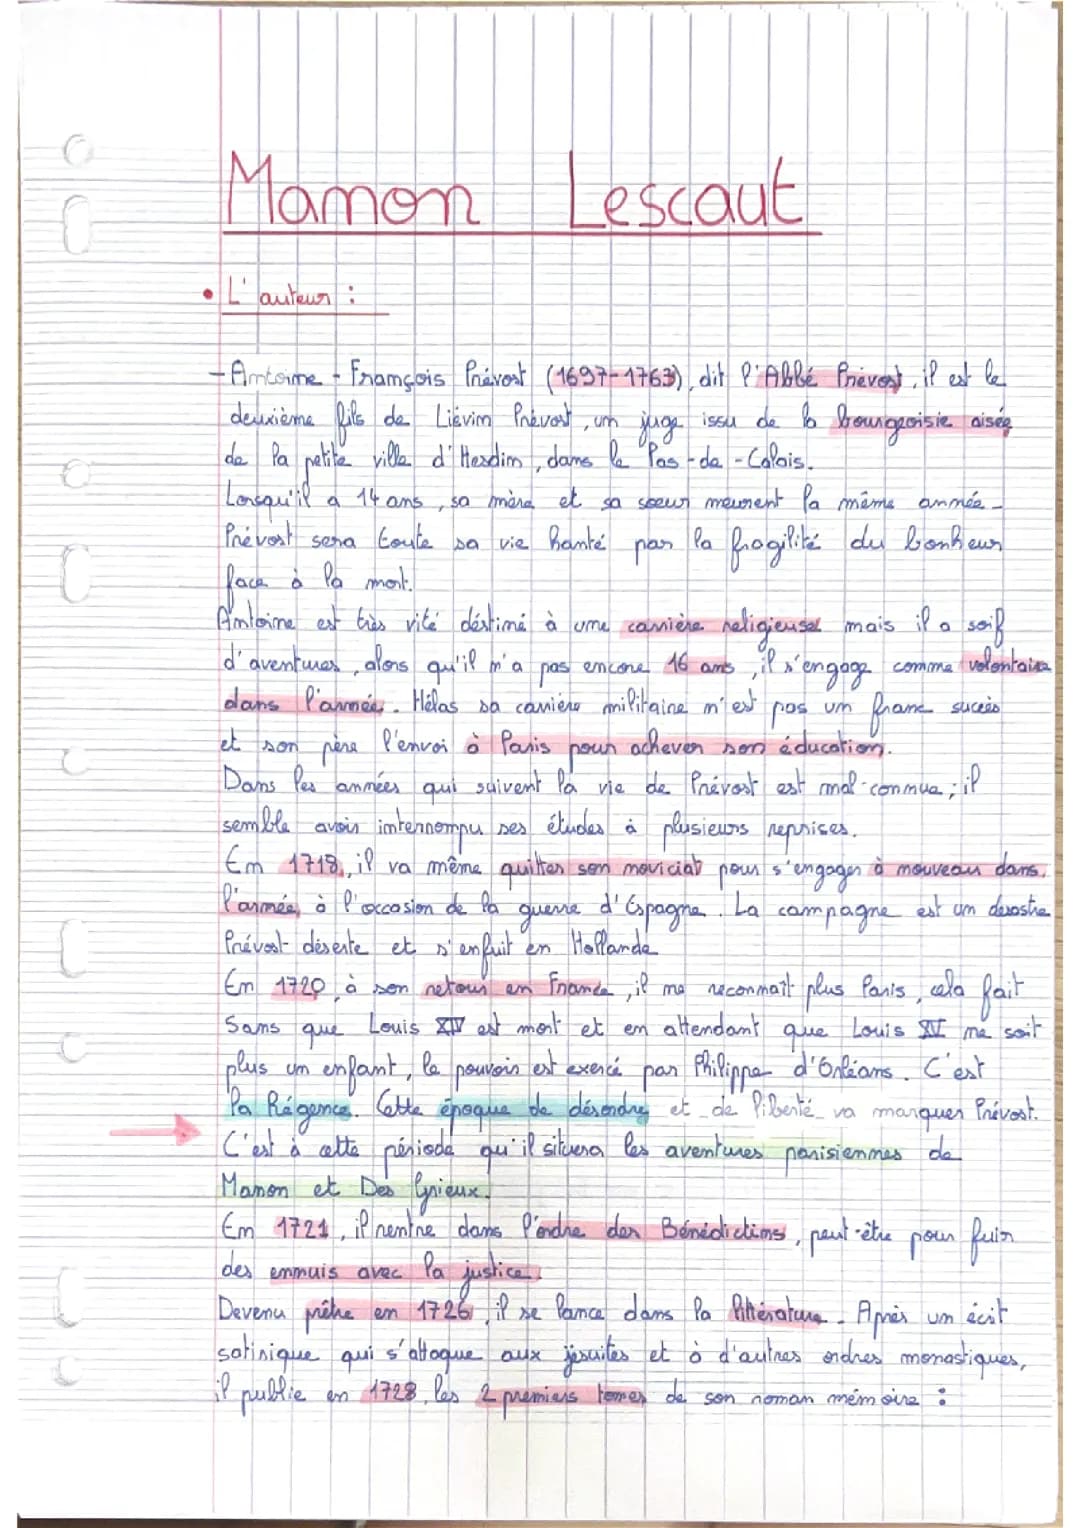 Manon Lescaut
• L'auteur :
- Antoine - François Prévost (1697-1763), dit l'Abbé Prévost, il est le
deuxième fils de Liévin Prévost, un juge issu de la bourgeoisie aisée
de la petite ville d'Hesdin, dans le Pas-de-Calais.
Lorsqu'il a 14 ans, sa mère et sa soeur meurent la même année.
Prévost sera toute sa vie hanté par la fragilité du bonheur
face à la mort.
Antoine est très vité déstiné à une carrière religieuse mais il a soif
d'aventures, alors qu'il n'a pas encore 16 ans, il s'engage comme volontaire
dans l'armée. Hélas sa carrière militaire n'est pas un franc succès
et son père l'envoi à Paris pour achever son éducation.
Dans les années qui suivent la vie de Prévost est mal-connue ; il
semble avoir interrompu ses études à plusieurs reprises.
En 1718, il va même quitter son noviciat pour s'engager à nouveau dans
l'armée, à l'occasion de la guerre d'Espagne. La campagne est un desastre
Prévost déserte et s'enfuit en Hollande
En 1720, à son retour en France, il ne reconnaît plus Paris, cela fait
5ans que Louis XIV est mort et en attendant que Louis XV ne soit
plus un enfant, le pouvoir est exercé par Philippe d'Orléans. C'est
la Régence. Cette époque de désordre et de liberté va marquer Prévost.
C'est à cette période qu'il situera les aventures parisiennes de
Manon et Des Grieux.
En 1721, il rentre dans l'ordre des Bénédictins, peut-être pour fuir
des ennuis avec la justice.
Devenu prêtre en 1726, il se lance dans la littérature. Après un écrit
satirique qui s'attaque aux jésuites et à d'autres ordres monastiques,
il publie en 1728, les 2 premiers tomes de son roman mémoire :